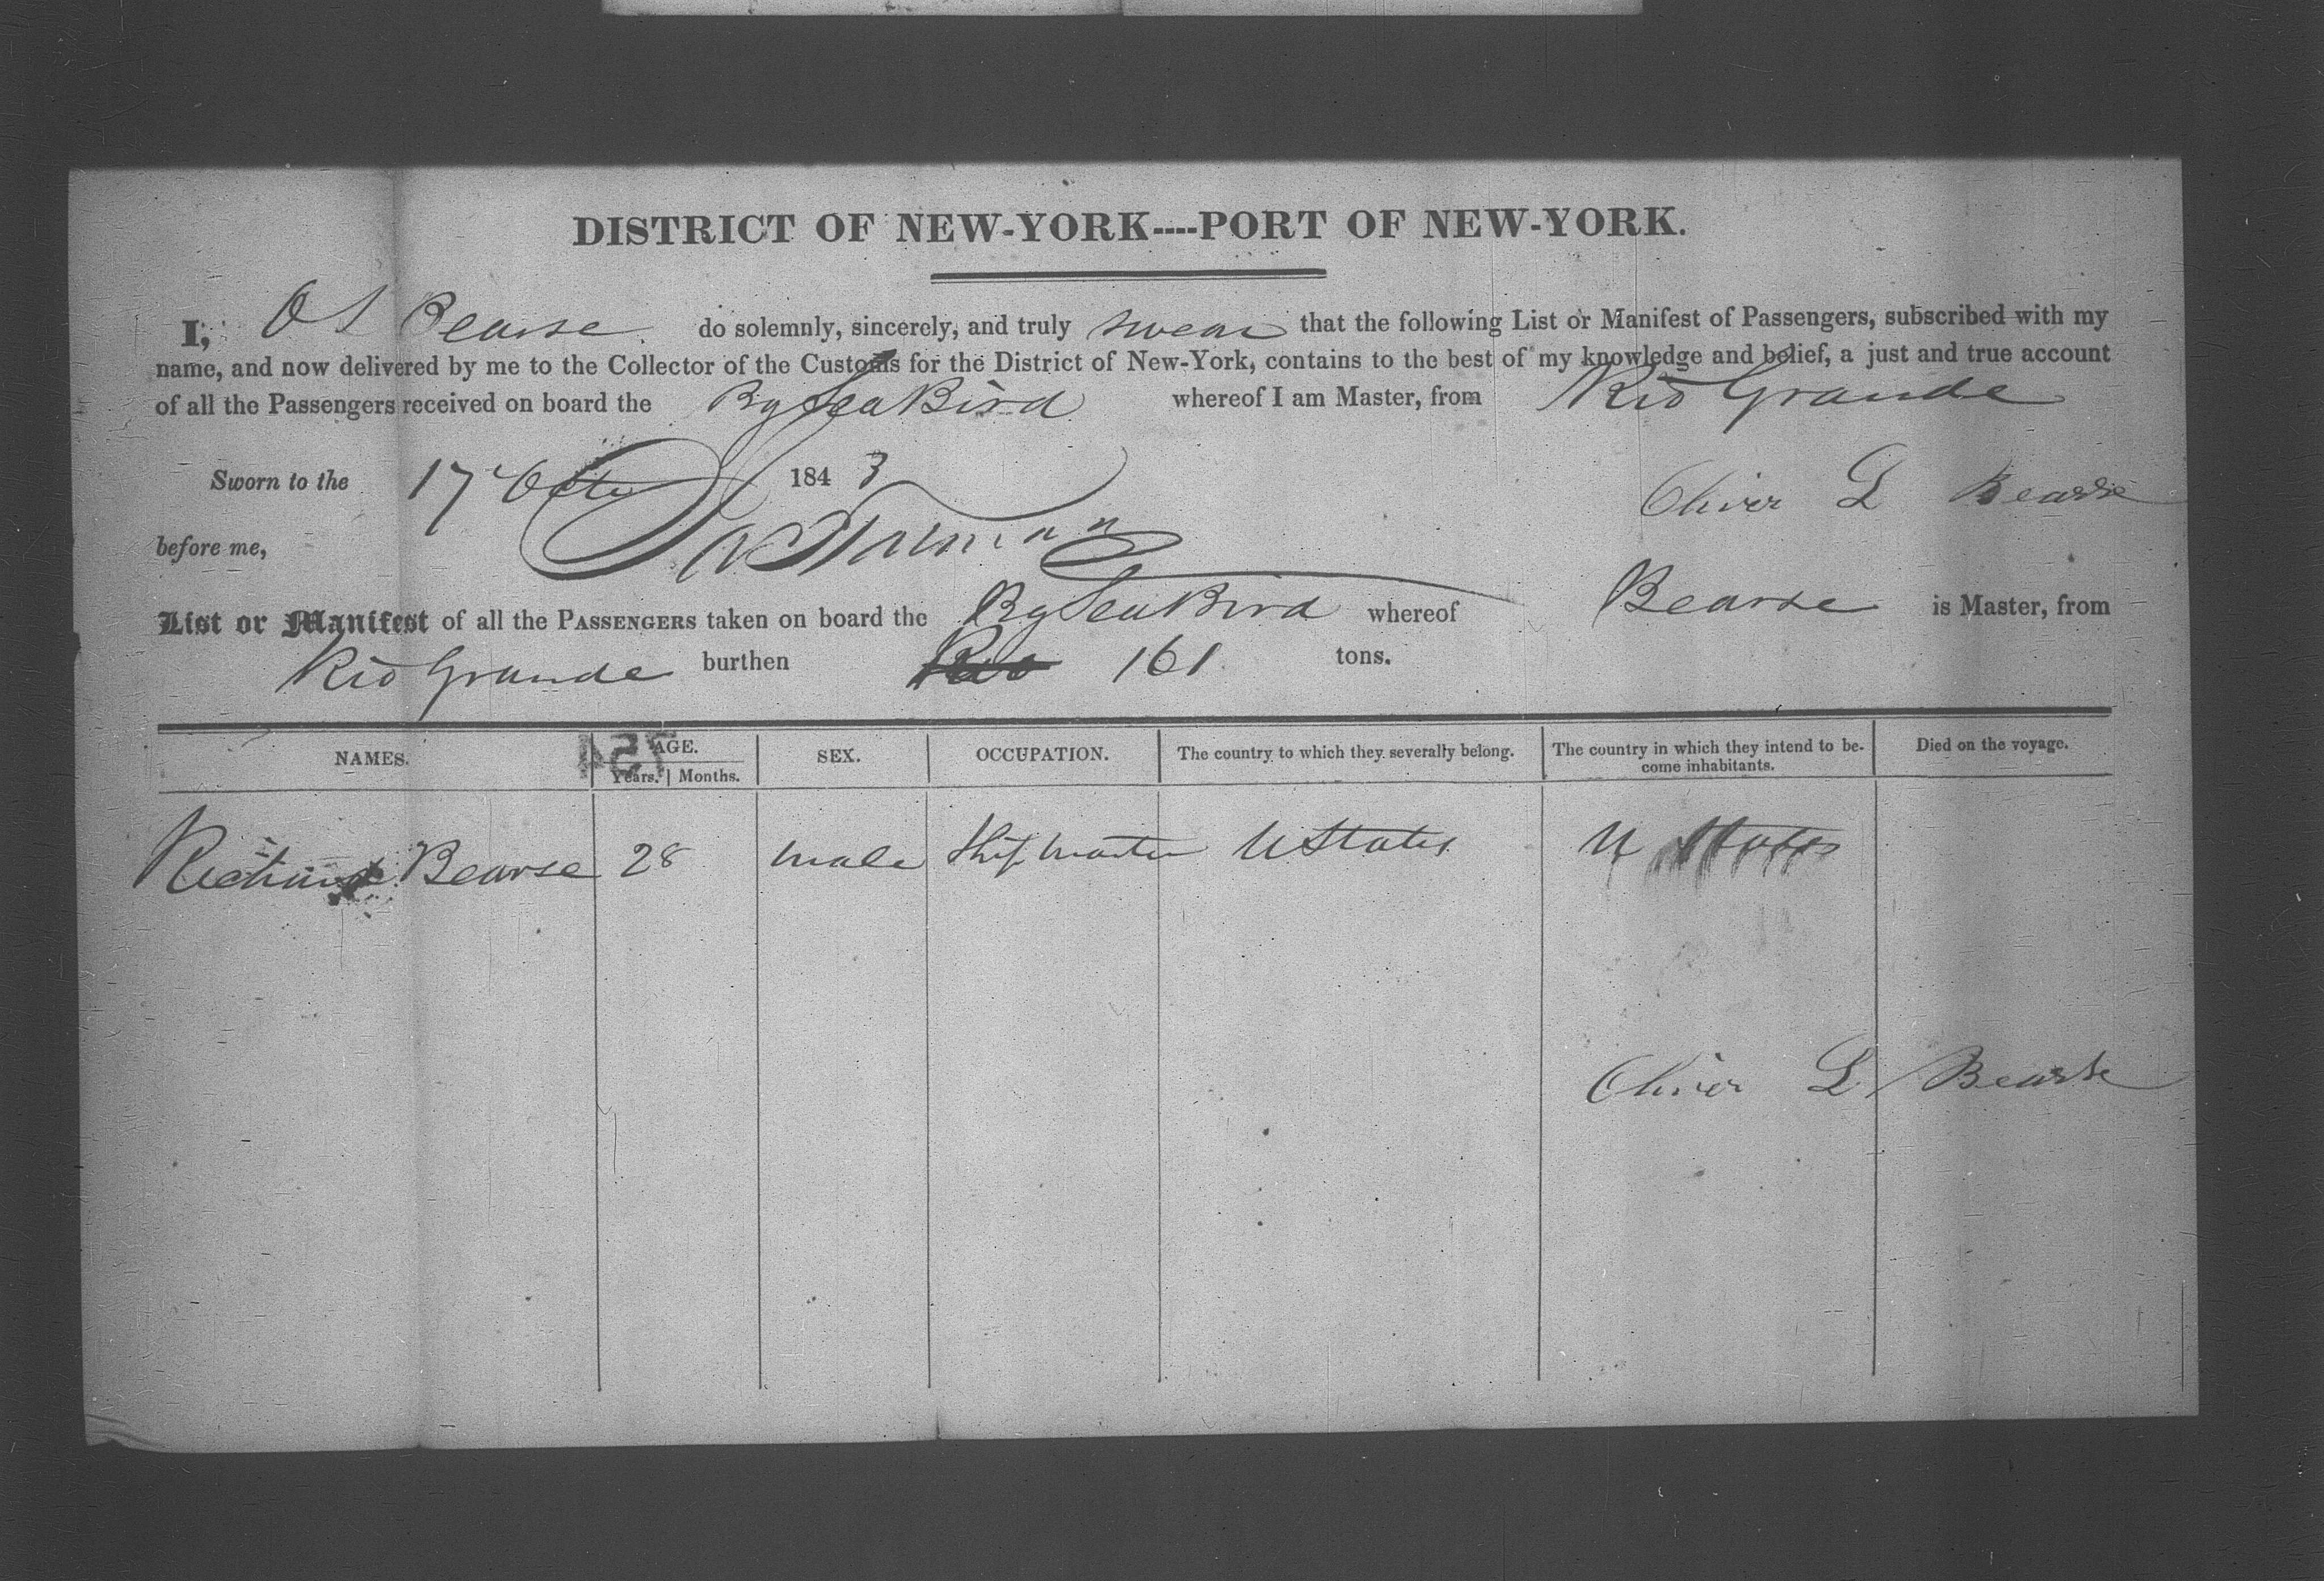 DISTRICT OF NEW-YORK----PORT OF NEW-YORK.
I, O L Bearse do solemnly, sincerely, and truly swear that the following List or Manifest of Passengers, subscribed with my
name, and now delivered by me to the Collector of the Customs for the District of New-York, contains to the best of my knowledge and belief, a just and true account
of all the Passengers received on board the Bg Sea Bird whereof I am Master, from Rio Grande
Sworn to the 17 Octr 1843 Oliver L Bearse
before me,
List or Manifest of all the PASSENGERS taken on board the Bg Sea Bird whereof Bearse is Master, from
Rio Grande burthen Rio 161 tons.
NAMES. AGE. SEX. OCCUPATION. The country to which they severally belong. The country in which they intend to be- Died on the voyage.
Years. Months. come inhabitants.
Richard Bearse 28 male Ship Master U States U States
Oliver L Bearse